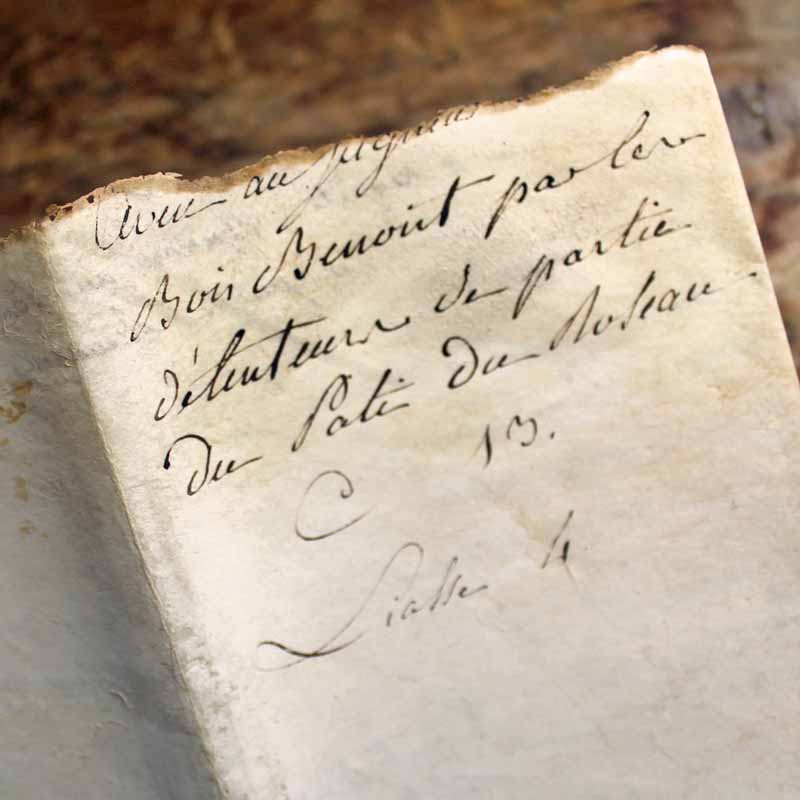 Aveu au seigneur
Bois Benoist par les
détenteurs de partie
du Pati du Roseau
C 13.
Liasse 4